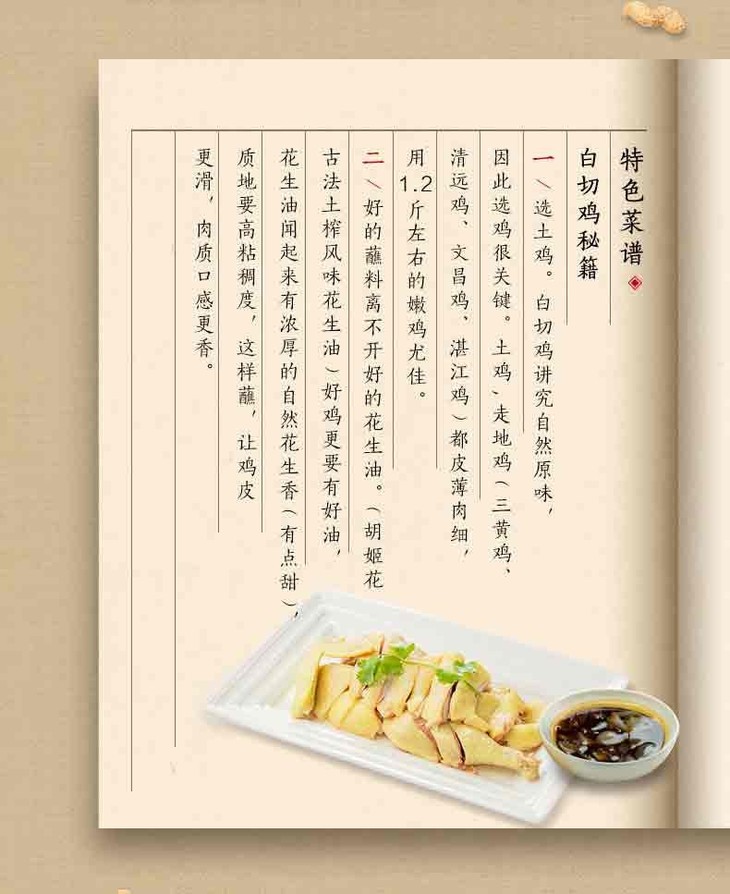 特色菜谱
白切鸡秘籍
一、选土鸡。白切鸡讲究自然原味，
因此选鸡很关键。土鸡、走地鸡（三黄鸡、
清远鸡、文昌鸡、湛江鸡）都皮薄肉细，
用1.2斤左右的嫩鸡尤佳。
二、好的蘸料离不开好的花生油。（胡姬花
古法土榨风味花生油）好鸡更要有好油，
花生油闻起来有浓厚的自然花生香（有点甜），
质地要高粘稠度，这样蘸，让鸡皮
更滑，肉质口感更香。